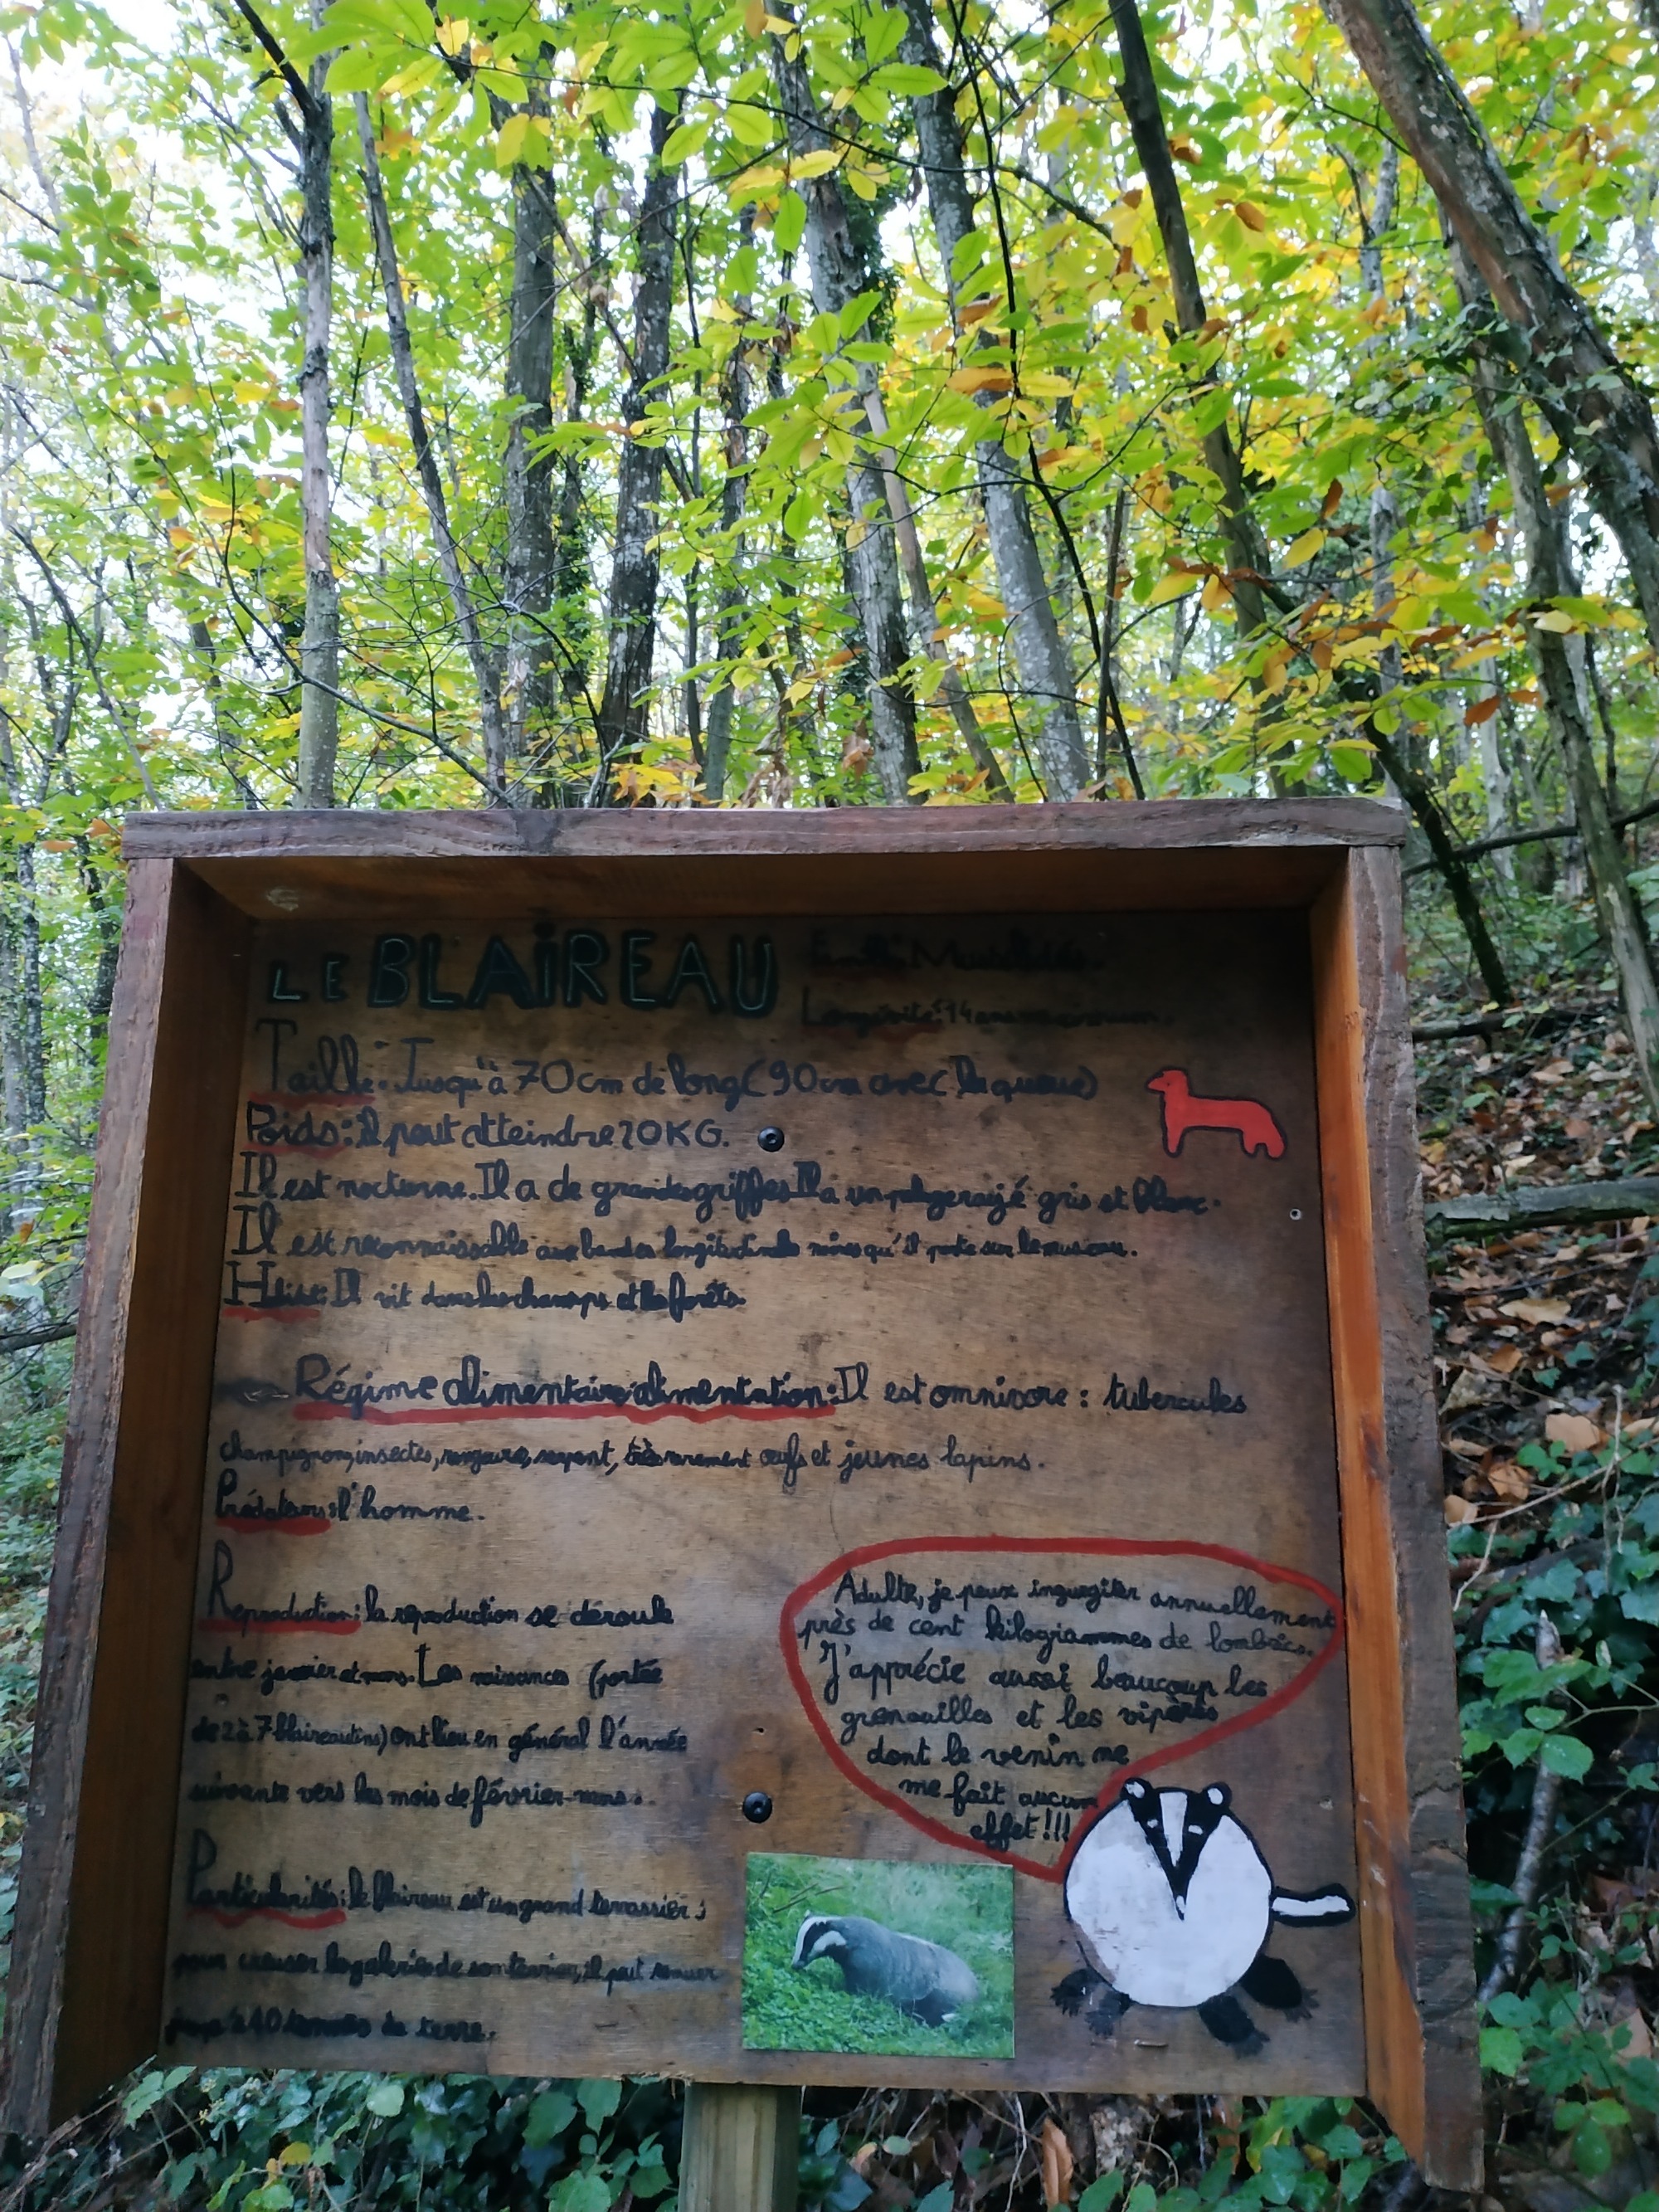 LE BLAIREAU
Famille: Mustélidés.
Longévité: 14 ans maximum.
Taille: Jusqu'à 70cm de long (90cm avec la queue)
Poids: il peut atteindre 20KG.
Il est nocturne. Il a de grandes griffes Il a un pelage rayé gris et blanc.
Il est reconnaissable aux bandes longitudinales noires qu'il porte sur le museau.
Il vit dans les champs et les forêts.
Régime alimentaire alimentation: Il est omnivore: tubercules
champignon, insectes, rongeurs, serpent, très rarement œufs et jeunes lapins.
Prédateurs: l'homme.
Reproduction: la reproduction se déroule
entre janvier et mars. Les naissances (portée
de 2 à 7 blaireautins) ont lieu en général l'année
suivante vers les mois de février-mars.
Particularités: le blaireau est un grand terrassier:
pour creuser les galeries de son terrier, il peut remuer
jusqu'à 40 tonnes de terre.
Adulte, je peux ingurgiter annuellement
près de cent kilogrammes de lombrics.
J'apprécie aussi beaucoup les
grenouilles et les vipères
dont le venin ne
me fait aucun
effet!!!